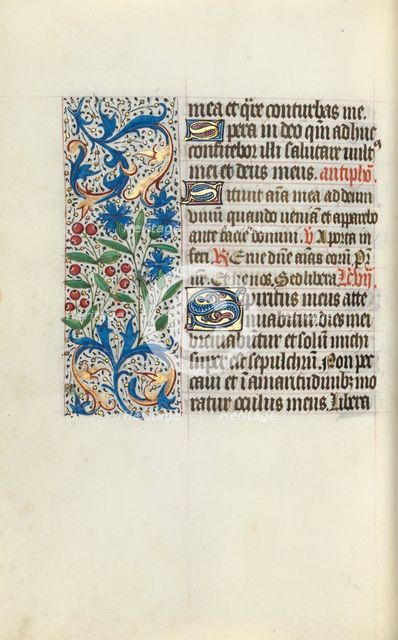 mea et q̄re conturbas me.
Spera in deo qm̄ adhuc
confitebor illi salutare vult⁹
mei et deus meus. antiphō.
Sitiuit aīa mea ad deum
viuum quando veniā et apparebo
ante faciē domini. V A porta in
feri. R Erue dn̄e aīas eoꝝ. Pr̄
nr̄. Et ne nos. Sed libera Lcō vij.
Spiritus meus atte
nuabitur dies mei
breuiabūtur et solum michi
supest sepulchrum. Non pec
caui et ī amaritudinibꝫ mo
ratur oculus meus. Libera
Heritage